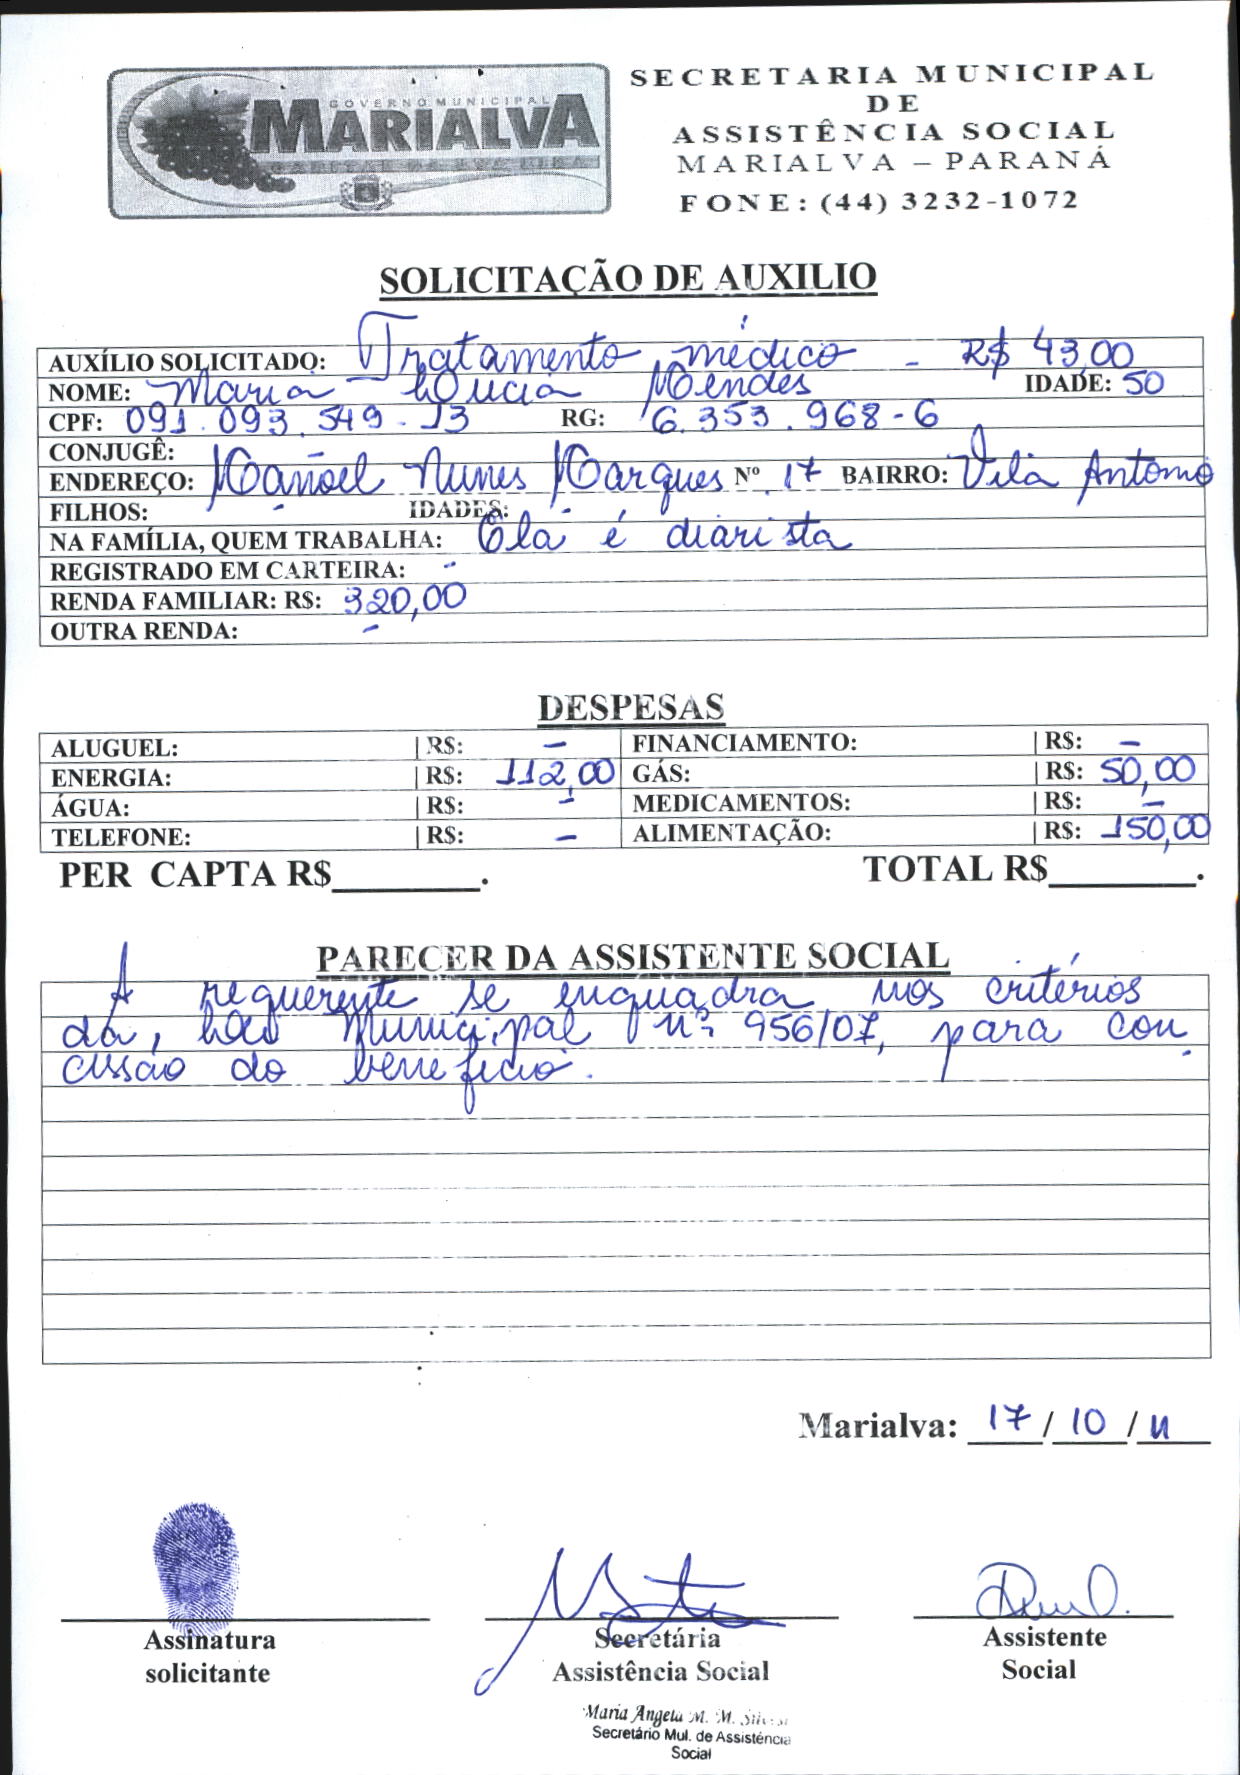 GOVERNO MUNICIPAL
MARIALVA
SECRETARIA MUNICIPAL
DE
ASSISTÊNCIA SOCIAL
MARIALVA – PARANÁ
FONE: (44) 3232-1072
SOLICITAÇÃO DE AUXILIO
AUXÍLIO SOLICITADO: Tratamento médico - R$ 43,00
NOME: Maria Lúcia Mendes IDADE: 50
CPF: 091.093.549-13 RG: 6.353.968-6
CONJUGÊ: -
ENDEREÇO: Manoel Nunes Marques Nº 17 BAIRRO: Vila Antonio
FILHOS: - IDADES: -
NA FAMÍLIA, QUEM TRABALHA: Ela é diarista
REGISTRADO EM CARTEIRA: -
RENDA FAMILIAR: R$: 320,00
OUTRA RENDA: -
DESPESAS
ALUGUEL: | R$: - FINANCIAMENTO: | R$: -
ENERGIA: | R$: 112,00 GÁS: | R$: 50,00
ÁGUA: | R$: - MEDICAMENTOS: | R$: -
TELEFONE: | R$: - ALIMENTAÇÃO: | R$: 150,00
PER CAPTA R$________. TOTAL R$________.
PARECER DA ASSISTENTE SOCIAL
A requerente se enquadra nos critérios
da, Lei Municipal nº 956/07, para con
cessão do benefício.
Marialva: 17 / 10 / 11
Assinatura Secretária Assistente
solicitante Assistência Social Social
Maria Angela M. M. Silvestri
Secretário Mul. de Assistência
Social